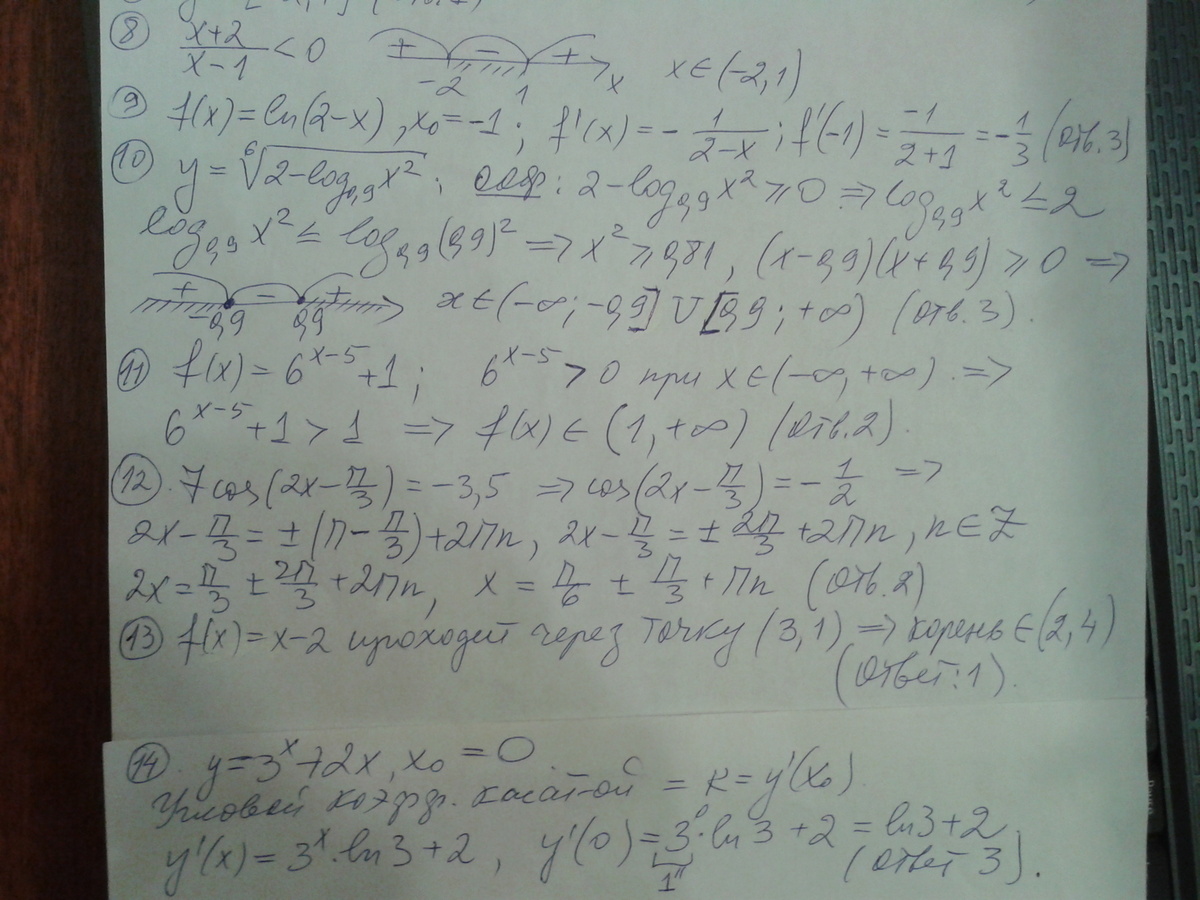 ⑧ x+2/x-1 < 0 + - + -2 1 x x∈(-2,1)
⑨ f(x)=ln(2-x), x₀=-1; f'(x)=-1/(2-x); f'(-1)=-1/(2+1)=-1/3 (Отв.3)
⑩ y=⁶√(2-log₀,₉x²); ООФ: 2-log₀,₉x²≥0 ⇒ log₀,₉x²≤2
log₀,₉x²≤log₀,₉(0,9)² ⇒ x²≥0,81, (x-0,9)(x+0,9)≥0 ⇒
+ - + -0,9 0,9 x∈(-∞;-0,9]∪[0,9;+∞) (Отв.3).
⑪ f(x)=6ˣ⁻⁵+1; 6ˣ⁻⁵>0 при x∈(-∞,+∞). ⇒
6ˣ⁻⁵+1>1 ⇒ f(x)∈(1,+∞) (Отв.2).
⑫. 7cos(2x-π/3)=-3,5 ⇒ cos(2x-π/3)=-1/2 ⇒
2x-π/3=±(π-π/3)+2πn, 2x-π/3=±2π/3+2πn, n∈Z
2x=π/3±2π/3+2πn, x=π/6±π/3+πn (Отв.2)
⑬ f(x)=x-2 проходит через точку (3,1) ⇒ корень∈(2,4)
(Ответ:1).
⑭. y=3ˣ+2x, x₀=0.
Угловой коэфф. касат-ой = k=y'(x₀).
y'(x)=3ˣ·ln3+2, y'(0)=3⁰·ln3+2=ln3+2
1 (Ответ 3).